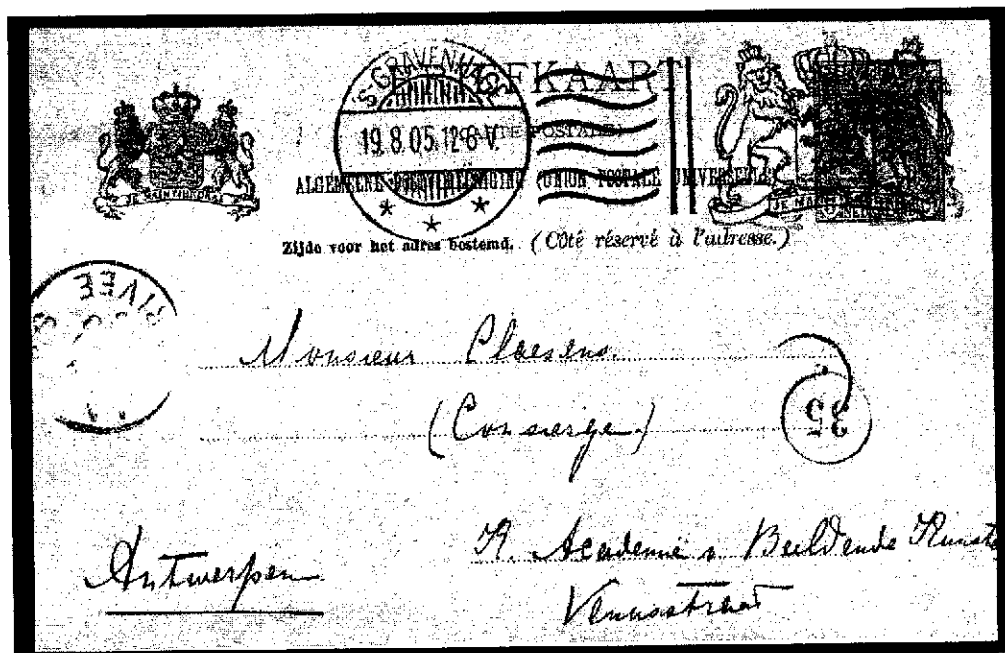 'S-GRAVENHAGE
19.8.05.12-6 V.
BRIEFKAART
(CARTE POSTALE)
ALGEMEENE POSTVEREENIGING (UNION POSTALE UNIVERSELLE)
JE MAINTIENDRAI
JE MAINTIENDRAI
Zijde voor het adres bestemd. (Côté réservé à l'adresse.)
Monsieur Claesens
35
(Consierge)
K. Academie v. Beeldende Kunste
Antwerpen
Venusstraat